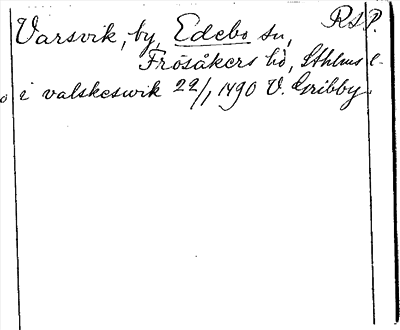 Varsvik, by, Edebo sn, RsP.
Frösåkers hd, Sthlms l.
o i valskeswik 22/1 1490 V. Gribby.